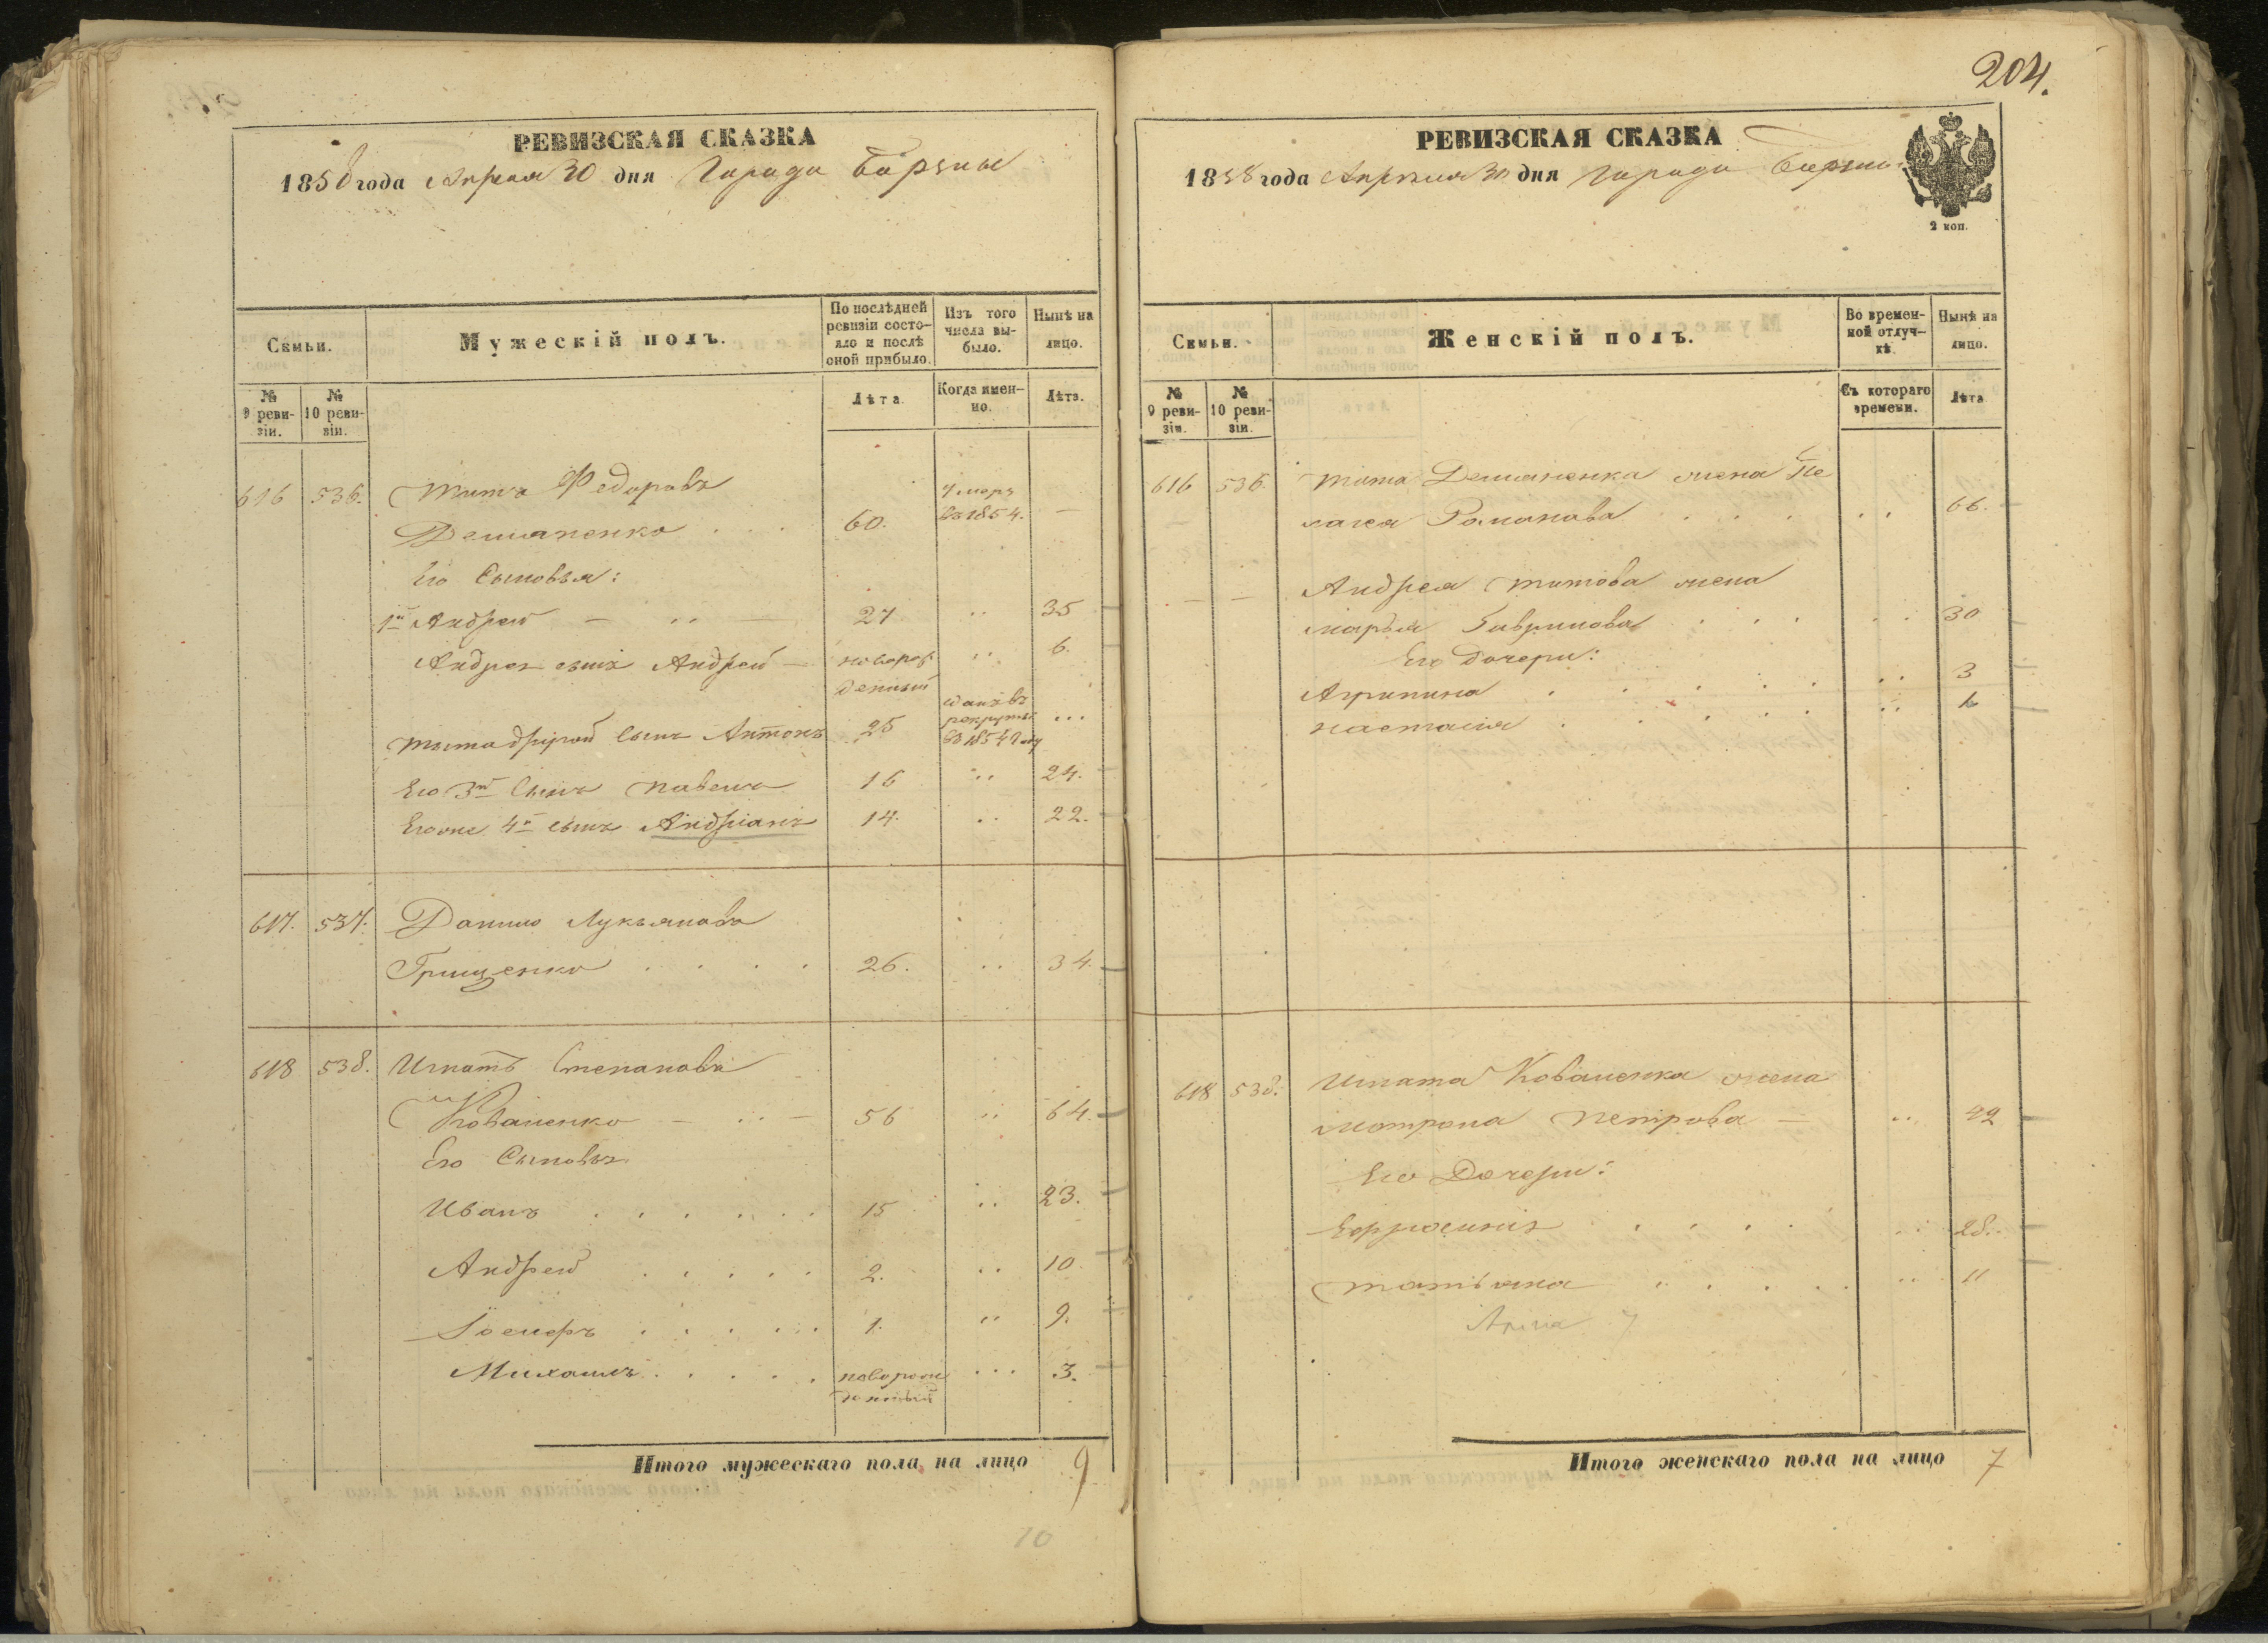 РЕВИЗСКАЯ СКАЗКА
1858 года Апреля 30 дня Города Борзны
Семьи.
Мужескій полъ.
По послѣдней ревизіи состояло и послѣ оной прибыло.
Изъ того числа выбыло.
Нынѣ на лицо.
№ 9 ревизіи.
№ 10 ревизіи.
Лѣта.
Когда именно.
Лѣта.
616 536. Титъ Федоровъ
Демьяненко . . . 60. Умеръ въ 1854. —
Его Сыновья:
1й Андрей — .. — 27 .. 35
Андрея сынъ Андрей — новорожденный .. 6.
Тита другой сынъ Антонъ 25 въ рекруты въ 1854 году ...
Его 3й Сынъ Павелъ 16 .. 24.
Егоже 4й сынъ Андріанъ 14. .. 22.
617. 537. Данило Лукьяновъ
Грищенко . . . . 26. .. 34.
618 538. Игнатъ Степановъ
Коваленко — .. — 56 .. 64.
Его Сыновья
Иванъ . . . . . . 15 .. 23.
Андрей . . . . . 2. .. 10
Іосифъ . . . . . 1. .. 9.
Михаилъ . . . . . новорожденный ... 3.
Итого мужескаго пола на лицо 9
10
204.
РЕВИЗСКАЯ СКАЗКА
1858 года Апреля 30 дня Города Борзны
2 коп.
Семьи.
Женскій полъ.
Во временной отлучкѣ.
Нынѣ на лицо.
№ 9 ревизіи.
№ 10 ревизіи.
Съ котораго времени.
Лѣта
616 536. Тита Демьяненка жена Пе
лагея Романова . . . . .. 66.
— — Андрея Титова жена
Марья Гаврилова . . . .. 30
Его Дочери:
Агрипина . . . . . .. 3
Настасія . . . . . .. 1
618 538. Игната Коваленка жена
Матрона Петрова — .. 42
Его Дочери:
Ефросинія . . . . .. 28.
Татьяна . . . . .. 11
Арина 7
Итого женскаго пола на лицо 7